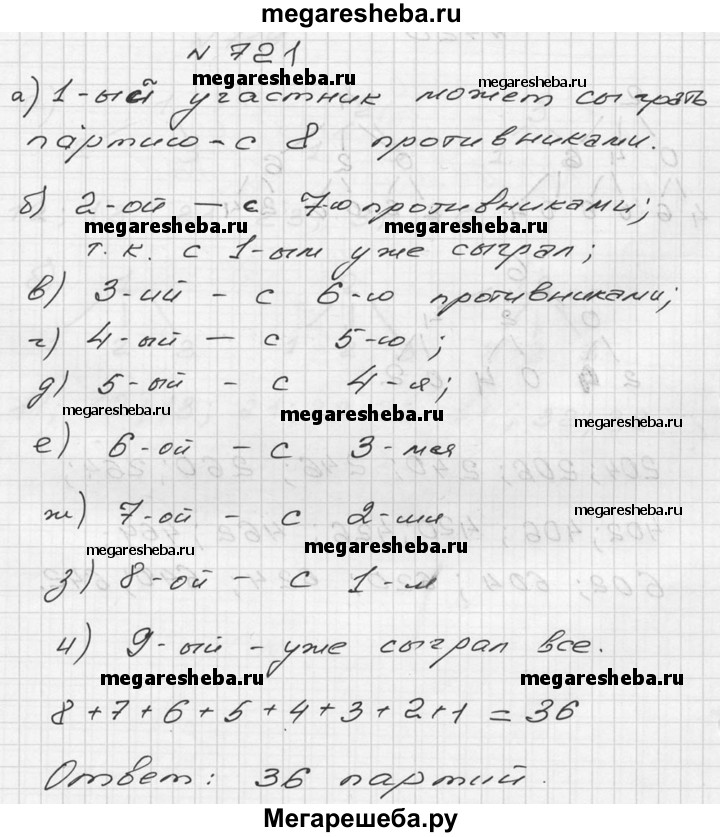 megaresheba.ru
№ 721
megaresheba.ru megaresheba.ru
а) 1-ый участник может сыграть
партию - с 8 противниками.
б) 2-ой — с 7-ю противниками;
megaresheba.ru megaresheba.ru
т. к. с 1-ым уже сыграл;
в) 3-ий - с 6-ю противниками;
г) 4-ый — с 5-ю;
д) 5-ый - с 4-я;
megaresheba.ru megaresheba.ru megaresheba.ru
е) 6-ой - с 3-мя
ж) 7-ой - с 2-мя
megaresheba.ru
megaresheba.ru megaresheba.ru
з) 8-ой - с 1-м
и) 9-ый - уже сыграл все.
megaresheba.ru megaresheba.ru
8 + 7 + 6 + 5 + 4 + 3 + 2 + 1 = 36
Ответ: 36 партий.
Мегарешеба.ру